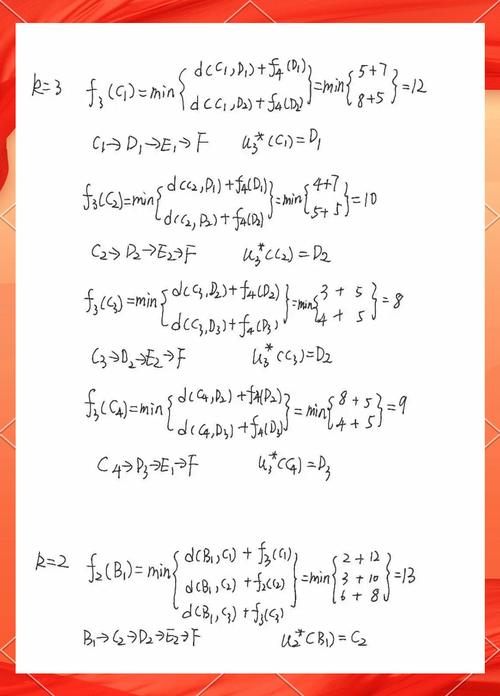 k=3 f₃(C₁)=min{d(C₁,D₁)+f₄(D₁) d(C₁,D₂)+f₄(D₂)}=min{5+7 8+5}=12
C₁→D₁→E₁→F u₃*(C₁)=D₁
f₃(C₂)=min{d(C₂,D₁)+f₄(D₁) d(C₂,D₂)+f₄(D₂)}=min{4+7 5+5}=10
C₂→D₂→E₂→F u₃*(C₂)=D₂
f₃(C₃)=min{d(C₃,D₂)+f₄(D₂) d(C₃,D₃)+f₄(D₃)}=min{3+5 4+5}=8
C₃→D₂→E₂→F u₃*(C₃)=D₂
f₃(C₄)=min{d(C₄,D₂)+f₄(D₂) d(C₄,D₃)+f₄(D₃)}=min{8+5 4+5}=9
C₄→D₃→E₁→F u₃*(C₄)=D₃
k=2 f₂(B₁)=min{d(B₁,C₁)+f₃(C₁) d(B₁,C₂)+f₂(C₂) d(B₁,C₃)+f₃(C₃)}=min{2+12 3+10 6+8}=13
B₁→C₂→D₂→E₂→F u₂*(B₁)=C₂